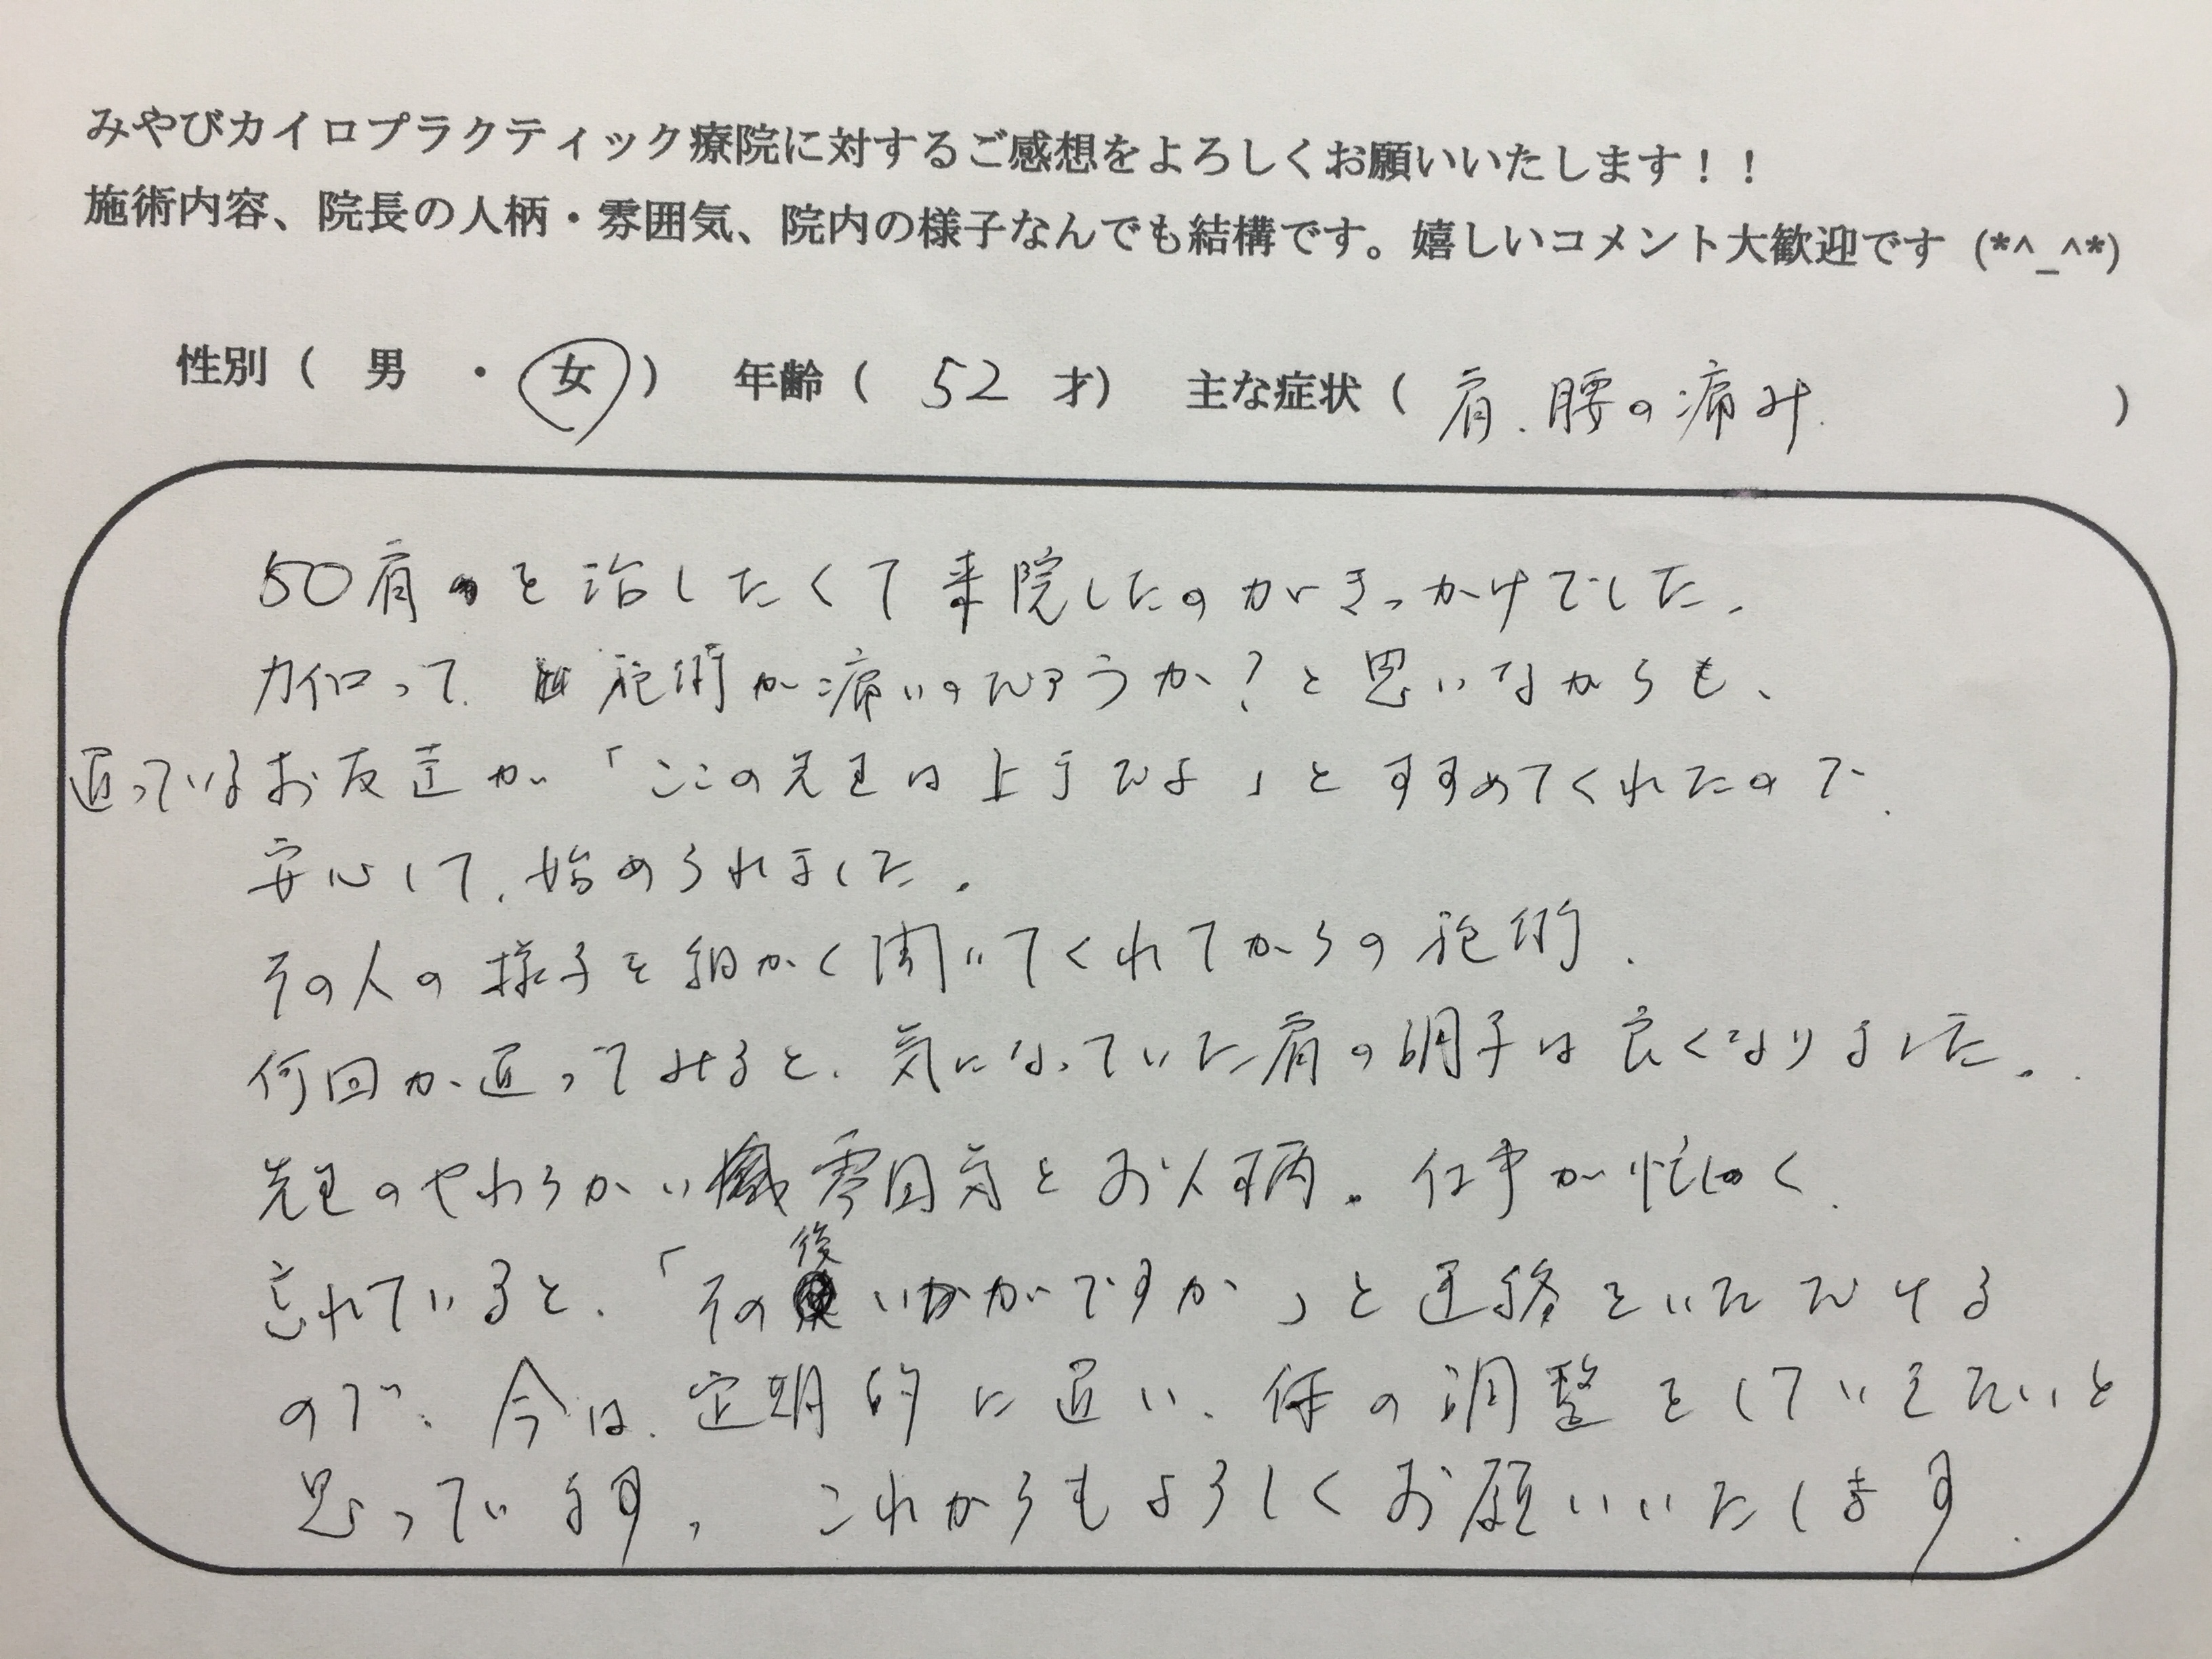 みやびカイロプラクティック療院に対するご感想をよろしくお願いいたします！！
施術内容、院長の人柄・雰囲気、院内の様子なんでも結構です。嬉しいコメント大歓迎です (*^_^*)
性別（ 男 ・ 女 ） 年齢（ 52 才） 主な症状（ 肩、腰の痛み. ）
50肩を治したくて来院したのがきっかけでした。
カイロって、施術が痛いのだろうか？と思いながらも、
通っているお友達が「ここの先生は上手だよ」とすすめてくれたので、
安心して、始められました。
その人の様子を細かく聞いてくれてからの施術.
何回か通ってみると、気になっていた肩の調子は良くなりました。
先生のやわらかい雰囲気とお人柄。仕事が忙しく、
忘れていると、「その後いかがですか」と連絡をいただける
ので、今は、定期的に通い、体の調整をしていきたいと
思っています。これからもよろしくお願いいたします.